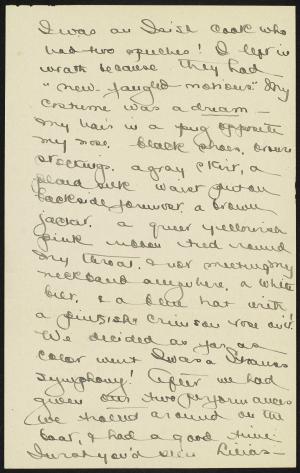 I was an Irish cook who
had two speeches! I left in
wrath because they had
"new fangled notions" My
costume was a dream —
My hair in a pug opposite
my nose, black shoes, brown
stockings, a gray skirt, a
plaid silk waist put on
backside foremost, a brown
jacket, a queer yellowish
pink ribbon tied round
my throat, & not meeting my
neckband anywhere, a white
bib, & a blue hat with
a pinkish crimson rose on it!
We decided as far as
color went I was a Strauss
Symphony! After we had
given our two performances
we trailed around on the
boat, & had a good time.
I wish you'd seen